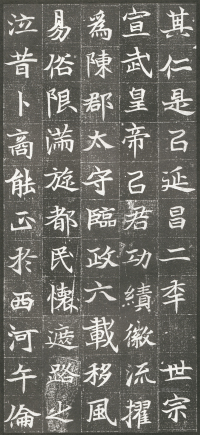 其仁是㠯延昌二秊　世宗
宣武皇帝㠯君功績徽流擢
爲陳郡太守臨政六載移風
易俗限滿旋都民懷遮路之
泣昔卜商能正於西河午倫